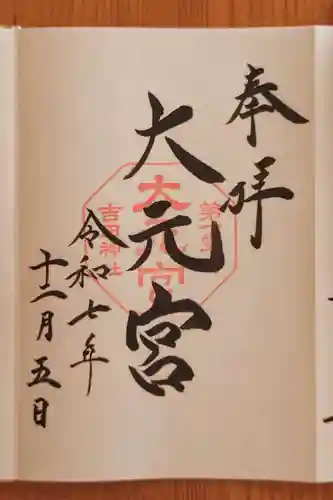 奉拝
大元宮
令和七年
十二月五日
吉田神社